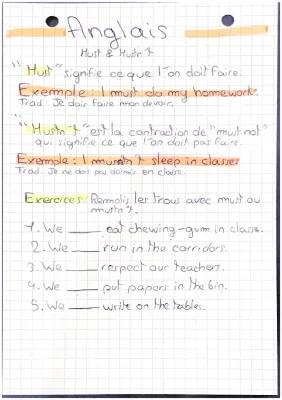 Anglais
Must & Mustn't
"Must" signifie ce que l'on doit faire.
Exemple: I must do my homework.
Trad: Je dois faire mon devoir.
"Mustn't" est la contraction de "must not"
qui signifie ce que l'on doit pas faire.
Exemple: I mustn't sleep in classes
Trad: Je ne doit pas dormir en classe.
Exercices: Remplis les trous avec must ou
mustn't.
1. We ____ eat chewing-gum in classe.
2. We ____ run in the corridors.
3. We ____ respect our teachers.
4. We ____ put papers in the bin.
5. We ____ write on the tables.